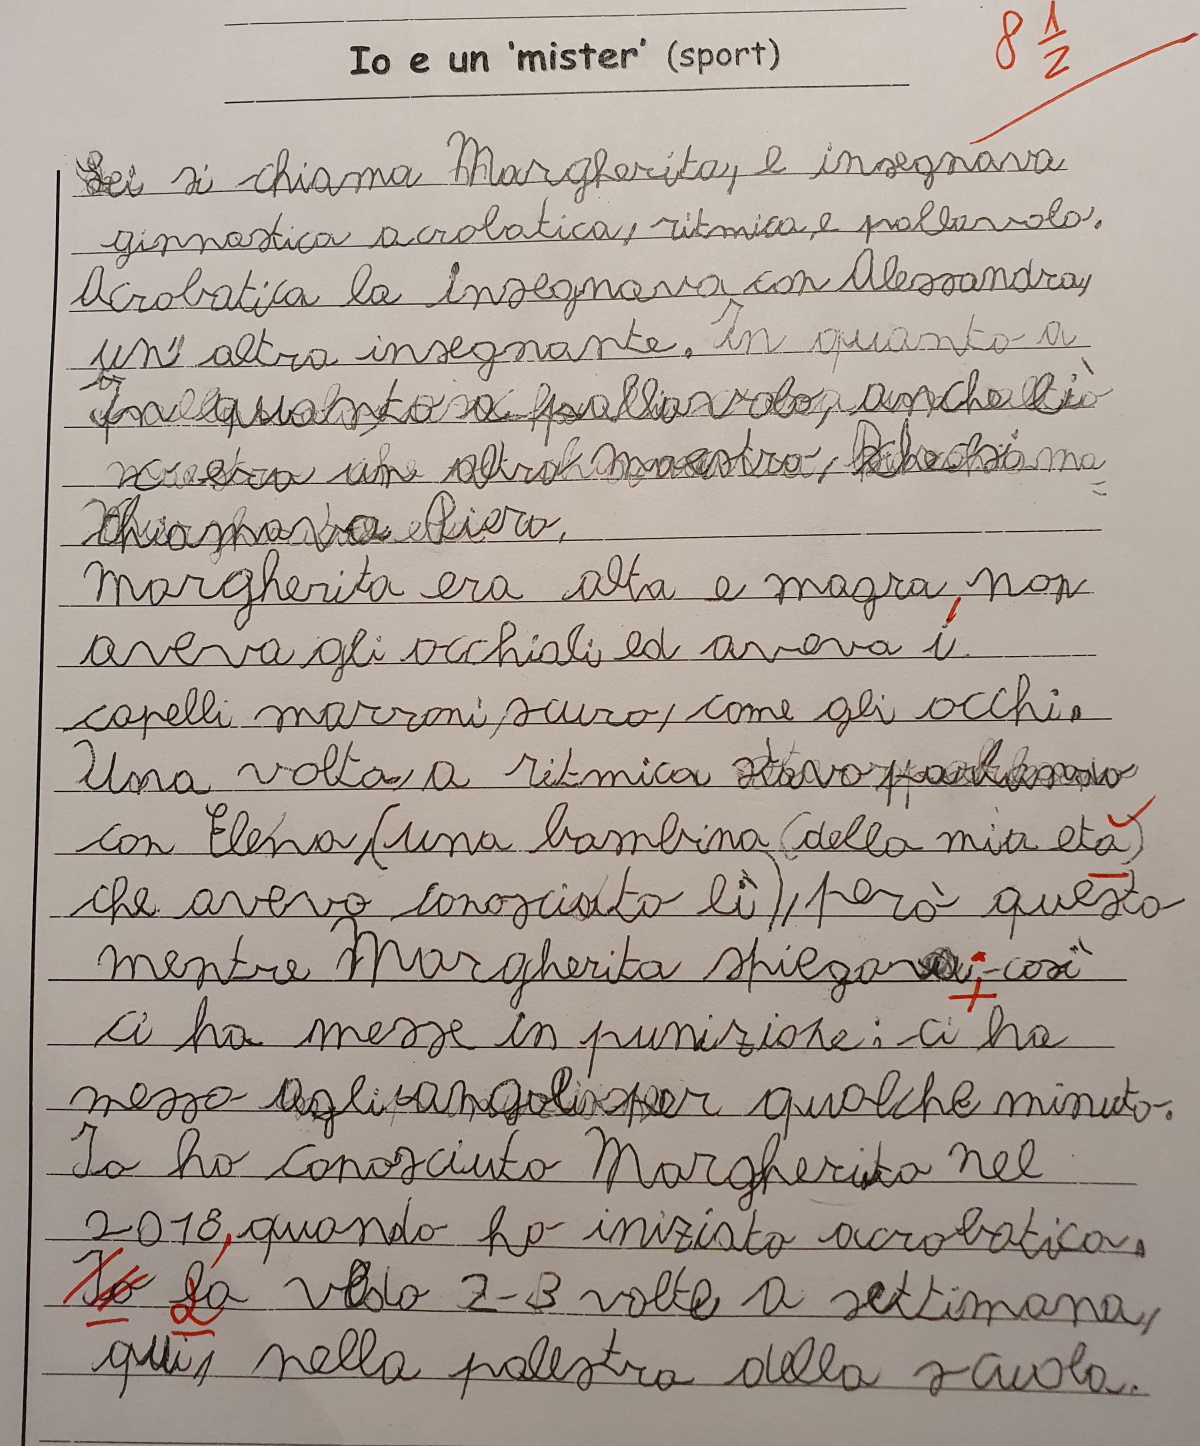 Io e un 'mister' (sport)
8 1/2
Lei si chiama Margherita, e insegnava
ginnastica acrobatica, ritmica, e pallavolo.
Acrobatica la insegnava con Alessandra,
un' altra insegnante. In quanto a
In quanto a pallavolo, anche lì
un altro maestro, che si
chiamava Piero.
Margherita era alta e magra, non
aveva gli occhiali ed aveva i
capelli marroni, scuro, come gli occhi.
Una volta, a ritmica stavo parlando
con Elena, (una bambina (della mia età)
che avevo conosciuto lì), però questo
mentre Margherita spiegava; così
ci ha messe in punizione: ci ha
messo agli angoli per qualche minuto.
Io ho conosciuto Margherita nel
2018, quando ho iniziato acrobatica.
Io La vedo 2-3 volte a settimana,
qui, nella palestra della scuola.